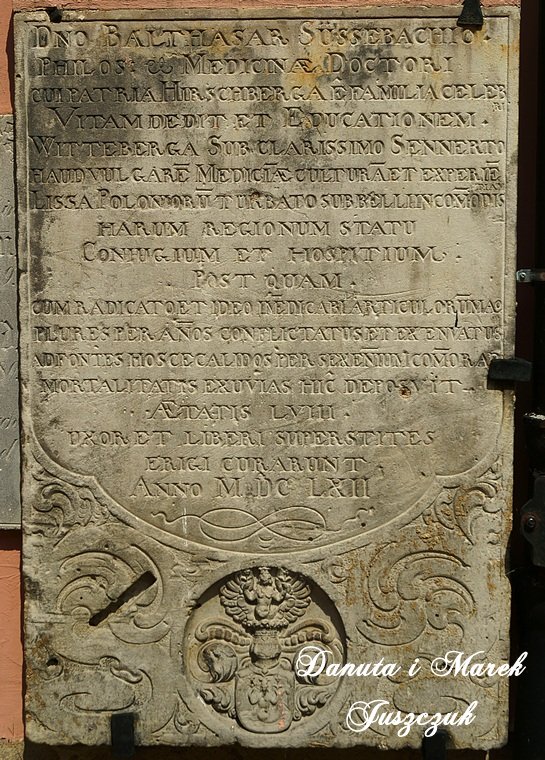 DNO BALTHASAR SÜSSEBACHIO.
PHILOS: & MEDICINÆ DOCTORI
CUI PATRIA HIRSCHBERGA È FAMILIA CELEBRI
VITAM DEDIT ET EDUCATIONEM.
WITTEBERGA SUB CLARISSIMO SENNERTO
HAUD VULGARĒ MEDICINÆ CULTURĀ ET EXPERIĒ
LISSA POLONIORŪ TURBATO SUB BELLI INCOM̄ODIS
HARUM REGIONUM STATU
CONIUGIUM ET HOSPITIUM.
POST QUAM.
CUM RADICATO ET IDEO IN̄EDICABI ARTICULORŪ
PLURES PER AN̄OS CONFLICTATUS ET EXENVATUS
AD FONTES HOSCE CALIDOS PER SEXEN̄IUM COM̄ORAT
MORTALITATIS EXUVIAS HIC DEPOSVIT
ÆTATIS LVIII.
UXOR ET LIBERI SUPERSTITES
ERIGI CURARUNT.
ANNO M.DC LXII
Danuta i Marek
Juszczuk